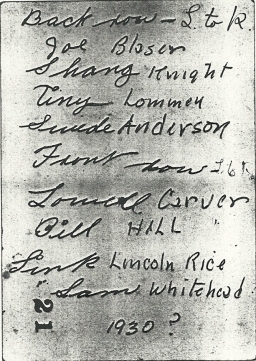 Back row - L to R
Joe Bloser
Shang Knight
Tiny Lommen
Swede Anderson
Front row L to R
Lowell Carver
Bill HILL
"Link Lincoln Rice
"Sam Whitehead
21
1930 ?